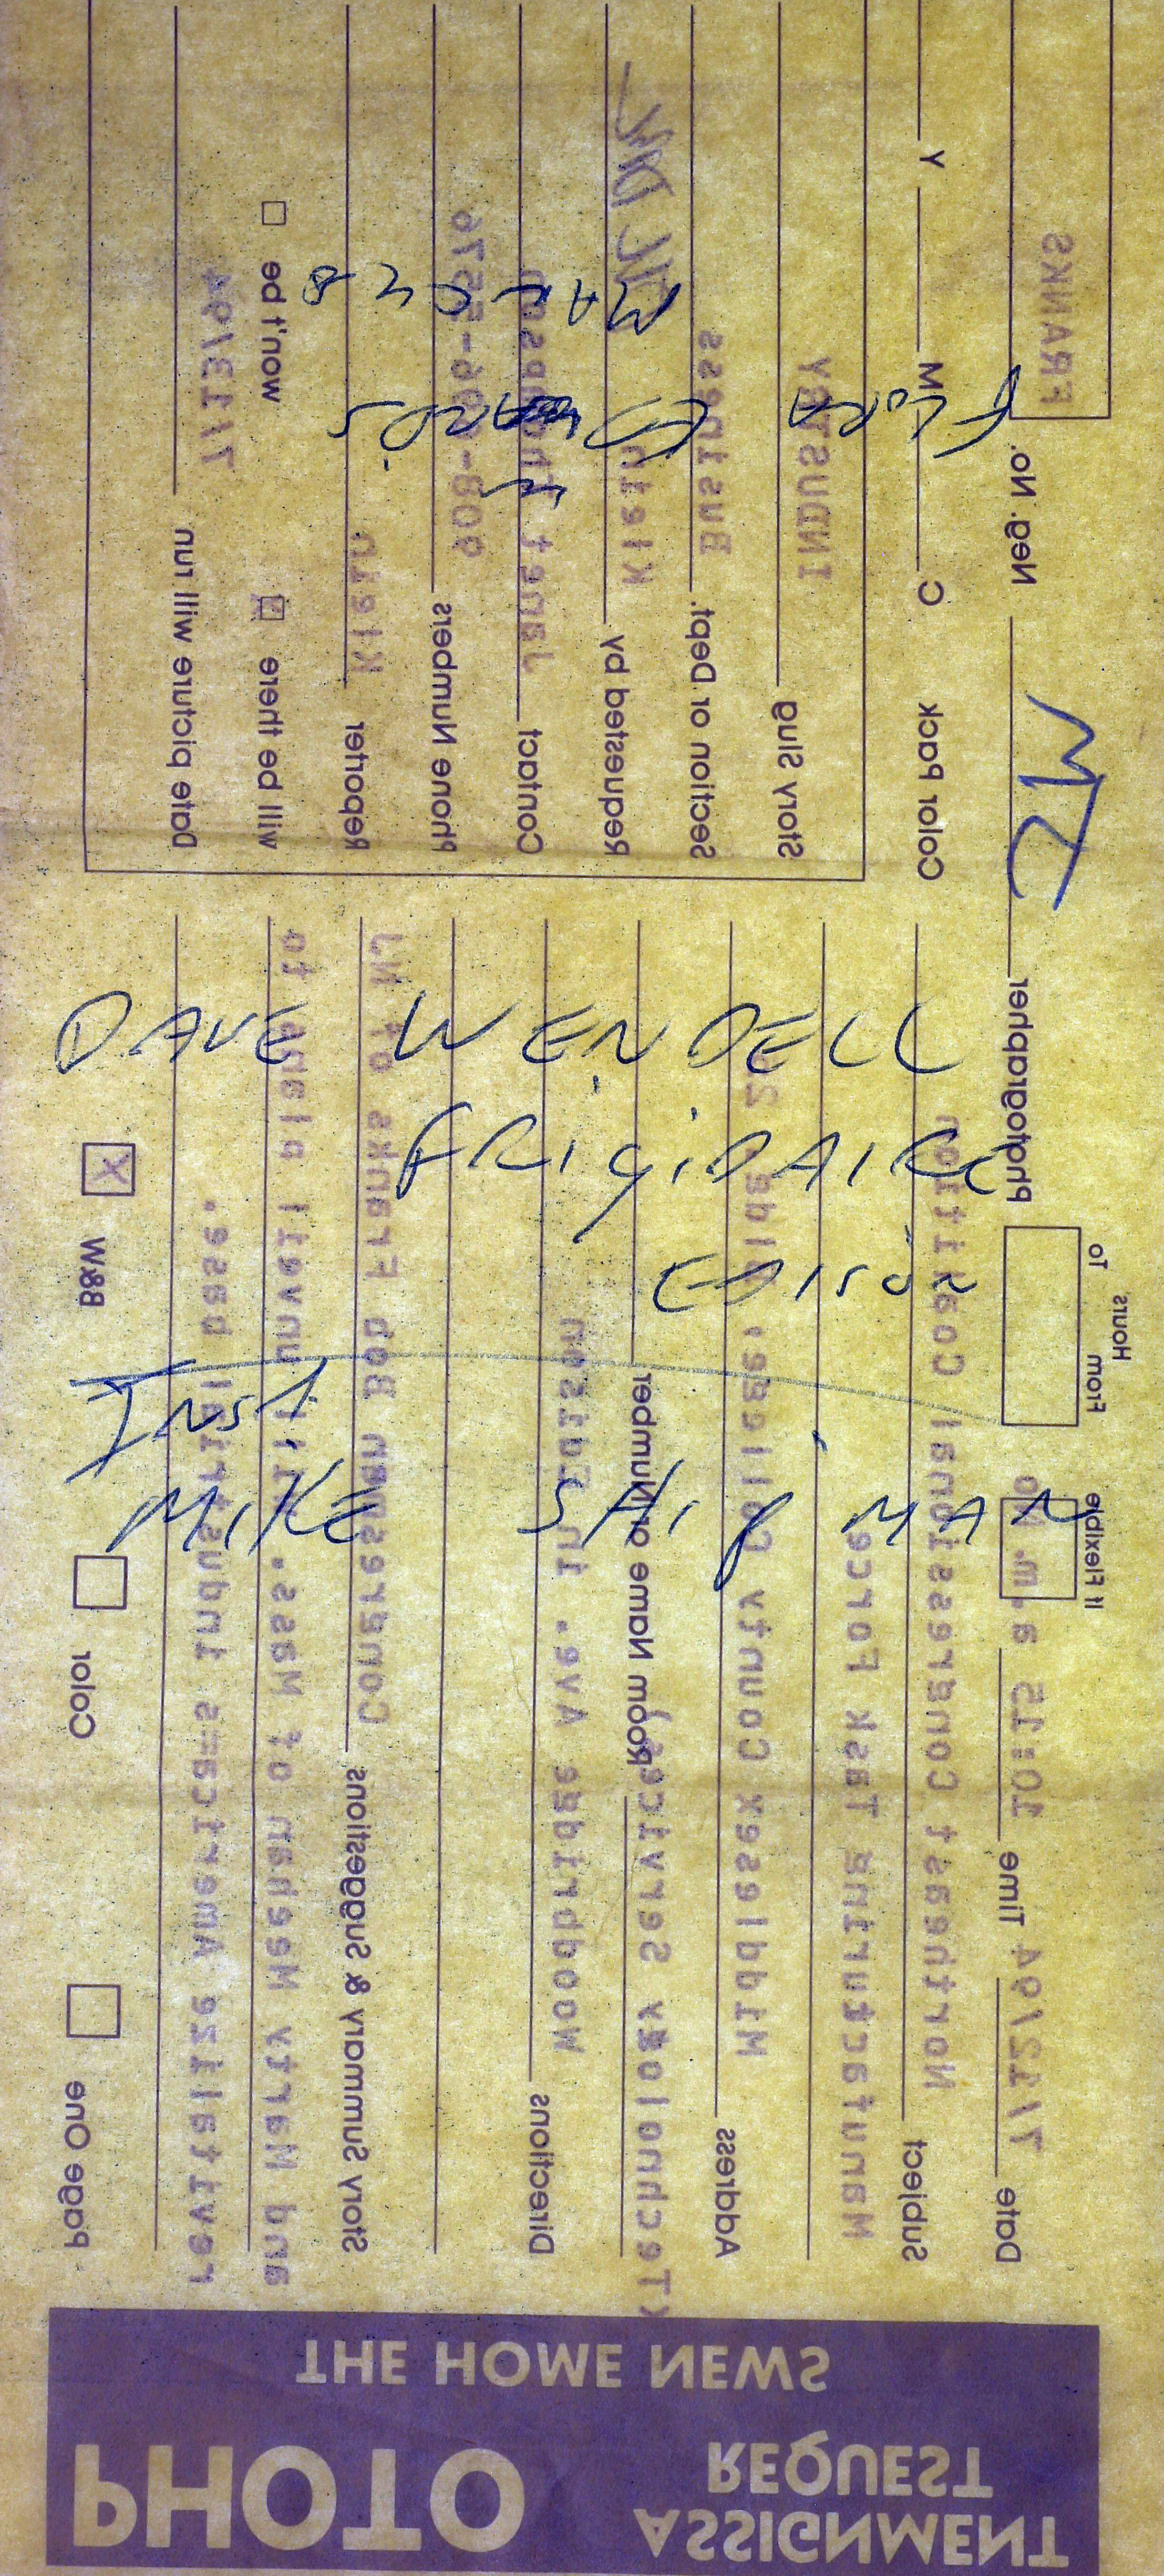 PHOTO
ASSIGNMENT
REQUEST
THE HOME NEWS
Date 7/12/94 Time 10:15 a.m.
If Flexible
From To
Hours
Photographer JM
Neg. No. FRANKS
Subject Northeast Congressional Coalition
Manufacturing Task Force
Address Middlesex County College,
(Technology Services)
Room Name or Number
Directions Woodbridge Ave. in Edison
Story Summary & Suggestions Congressman Bob Franks of NJ
and Marty Meehan of Mass. will unveil a plan to
revitalize America's industrial base.
Page One
Color
B&W X
Color Pack C M Y
Story Slug INDUSTRY
Section or Dept. Business
Requested by Klein
Contact Janet Thompson
Phone Numbers
Reporter Klein
will be there
won't be
Date picture will run 7/13/94
DAVE WENDELL
FRIGIDAIRE
EDISON
INST.
MIKE SHIPMAN
FLORA EDWARDS